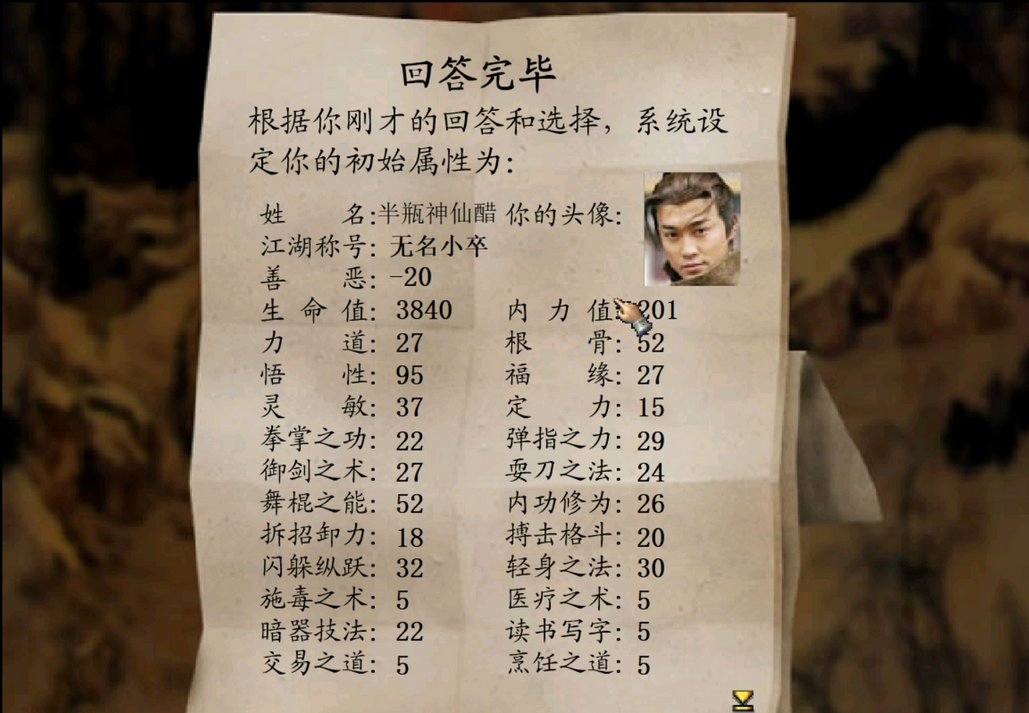 回答完毕
根据你刚才的回答和选择，系统设
定你的初始属性为：
姓 名：半瓶神仙醋 你的头像：
江湖称号：无名小卒
善 恶：-20
生 命 值：3840 内 力 值：201
力 道：27 根 骨：52
悟 性：95 福 缘：27
灵 敏：37 定 力：15
拳掌之功：22 弹指之力：29
御剑之术：27 耍刀之法：24
舞棍之能：52 内功修为：26
拆招卸力：18 搏击格斗：20
闪躲纵跃：32 轻身之法：30
施毒之术：5 医疗之术：5
暗器技法：22 读书写字：5
交易之道：5 烹饪之道：5